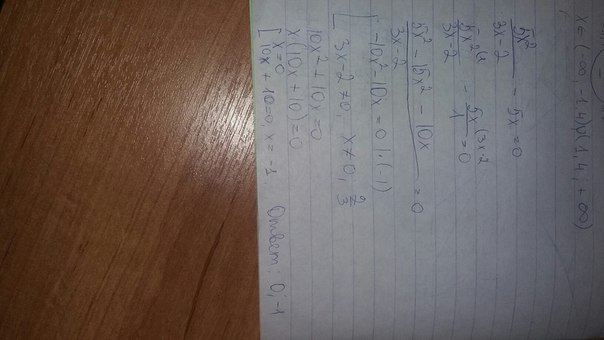 x ∈ (-∞, -1,4)∪(1,4; +∞)
5x²/(3x-2) - 5x = 0
5x²/(3x-2) - 5x(3x-2)/1 = 0
(5x² - 15x² - 10x)/(3x-2) = 0
[ -10x² - 10x = 0 | ·(-1)
3x-2 ≠ 0, x ≠ 0, 2/3
10x² + 10x = 0
x(10x + 10) = 0
[ x = 0
10x + 10 = 0 x = -1.
Ответ: 0; -1